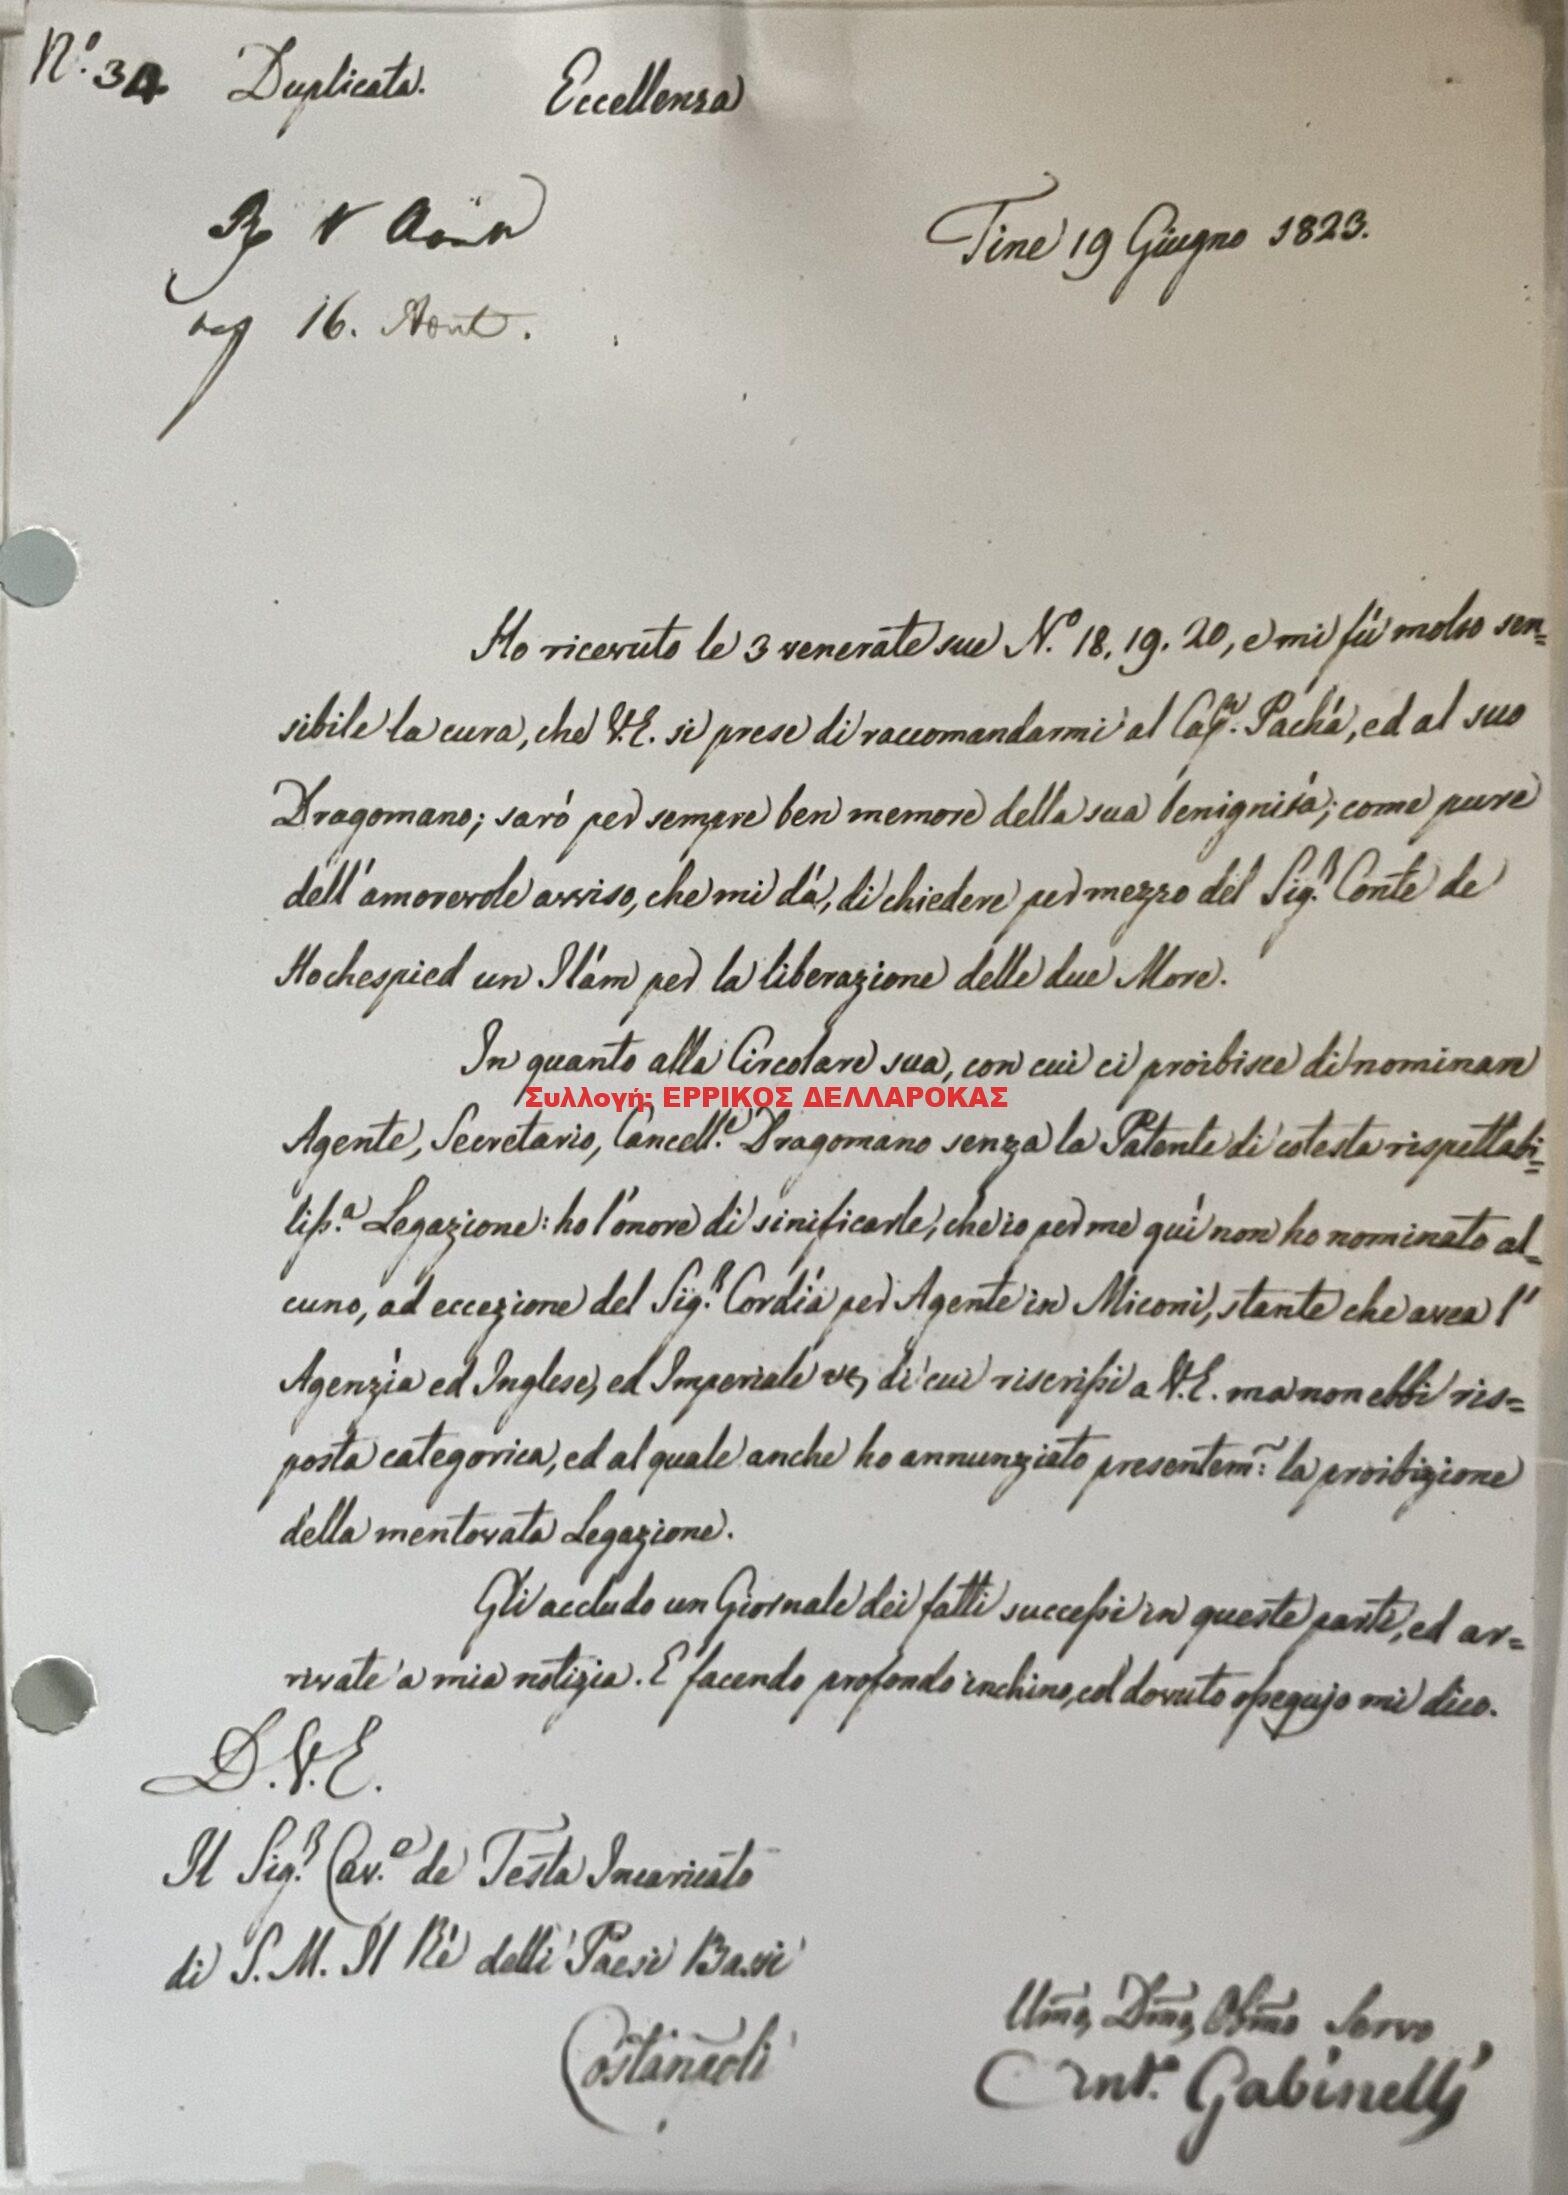 N.º 34 Duplicata. Eccellenza
Tine 19 Giugno 1823.
16. Aout.
Ho ricevuto le 3 venerate sue N.º 18, 19. 20, e mi fù molto sen=
sibile la cura, che V.E. si prese di raccomandarmi al Capⁿ. Pachá, ed al suo
Dragomano; saró per sempre ben memore della sua benignitá; come pure
dell'amorevole avviso, che mi dá, di chiedere per mezzo del Sig.ʳ Conte de
Hochespied un Ilám per la liberazione delle due More.
In quanto alla Circolare sua, con cui ci proibisce di nominare
Συλλογή: ΕΡΡΙΚΟΣ ΔΕΛΛΑΡΟΚΑΣ
Agente, Secretario, Cancell.ᵉ Dragomano senza la Patente di cotesta rispettabi=
liss.ª Legazione: ho l'onore di sinificarle, che io per me quí non ho nominato al=
cuno, ad eccezione del Sig.ʳ Cordiá per Agente in Miconi, stante che avea l'
Agenzía ed Inglese, ed Imperiale di cui riscrissi a V.E. ma non ebbi ris=
posta categorica, ed al quale anche ho annunziato presentem̃: la proibizione
della mentovata Legazione.
Gli accludo un Giornale dei fatti successi in queste parti, ed ar=
rivate a mia notizia. E facendo profondo inchino, col dovuto ossequjo mi dico.
D.V.E.
Il Sig.ʳ Cav.ᵉ de Testa Incaricato
di S.M. Il Rè delli Paesi Bassi
Costanpoli
Um̃o, Dm̃o, Obm̃o Servo
Ant.º Gabinelli